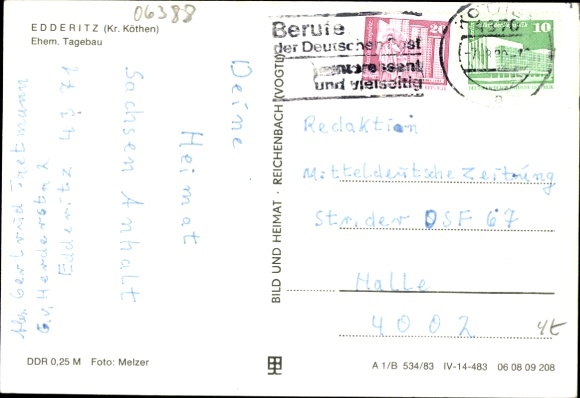 06388
EDDERITZ (Kr. Köthen)
Ehem. Tagebau
Deine
Heimat
Sachsen Anhalt
Abs. Gertrud
G.v. Herderstr 2
Edderitz 4371
DDR 0,25 M Foto: Melzer
BILD UND HEIMAT · REICHENBACH (VOGTL)
Berufe
der Deutschen Post
interessant
und vielseitig
20
10
4370
Redaktion
Mitteldeutsche Zeitung
Str. der DSF 67
Halle
4002
A 1/B 534/83 IV-14-483 06 08 09 208